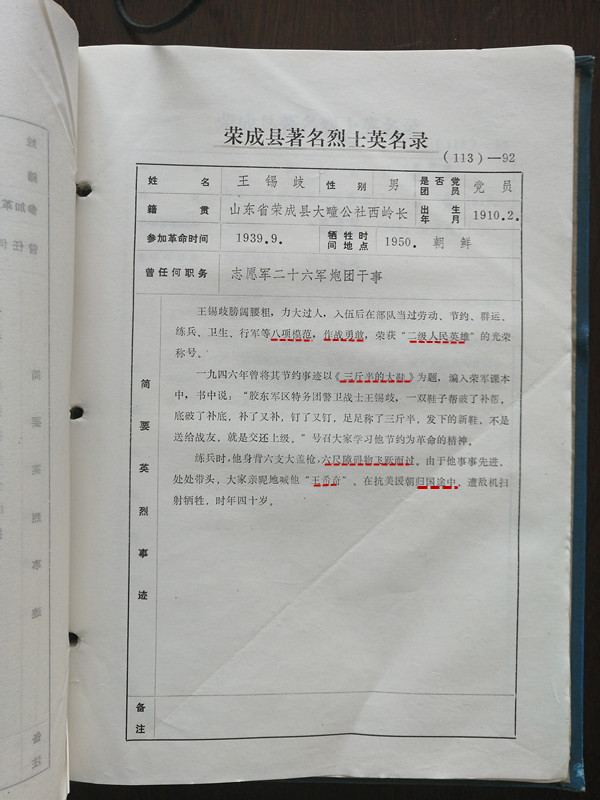 荣成县著名烈士英名录
(113)—92
姓名 王锡歧 性别 男 是否党团员 党员
籍贯 山东省荣成县大疃公社西岭长 出生年月 1910.2.
参加革命时间 1939.9. 牺牲时间地点 1950. 朝鲜
曾任何职务 志愿军二十六军炮团干事
简要英烈事迹
王锡歧膀阔腰粗，力大过人，入伍后在部队当过劳动、节约、群运、
练兵、卫生、行军等八项模范，作战勇敢，荣获“二级人民英雄”的光荣
称号。
一九四六年曾将其节约事迹以《三斤半的大鞋》为题，编入荣军课本
中，书中说：“胶东军区特务团警卫战士王锡歧，一双鞋子帮破了补帮，
底破了补底，补了又补，钉了又钉，足足称了三斤半，发下的新鞋，不是
送给战友，就是交还上级。”号召大家学习他节约为革命的精神。
练兵时，他身背六支大盖枪，六尺障碍物飞跃而过。由于他事事先进，
处处带头，大家亲昵地喊他“王希奇”。在抗美援朝归国途中，遭敌机扫
射牺牲，时年四十岁。
备注